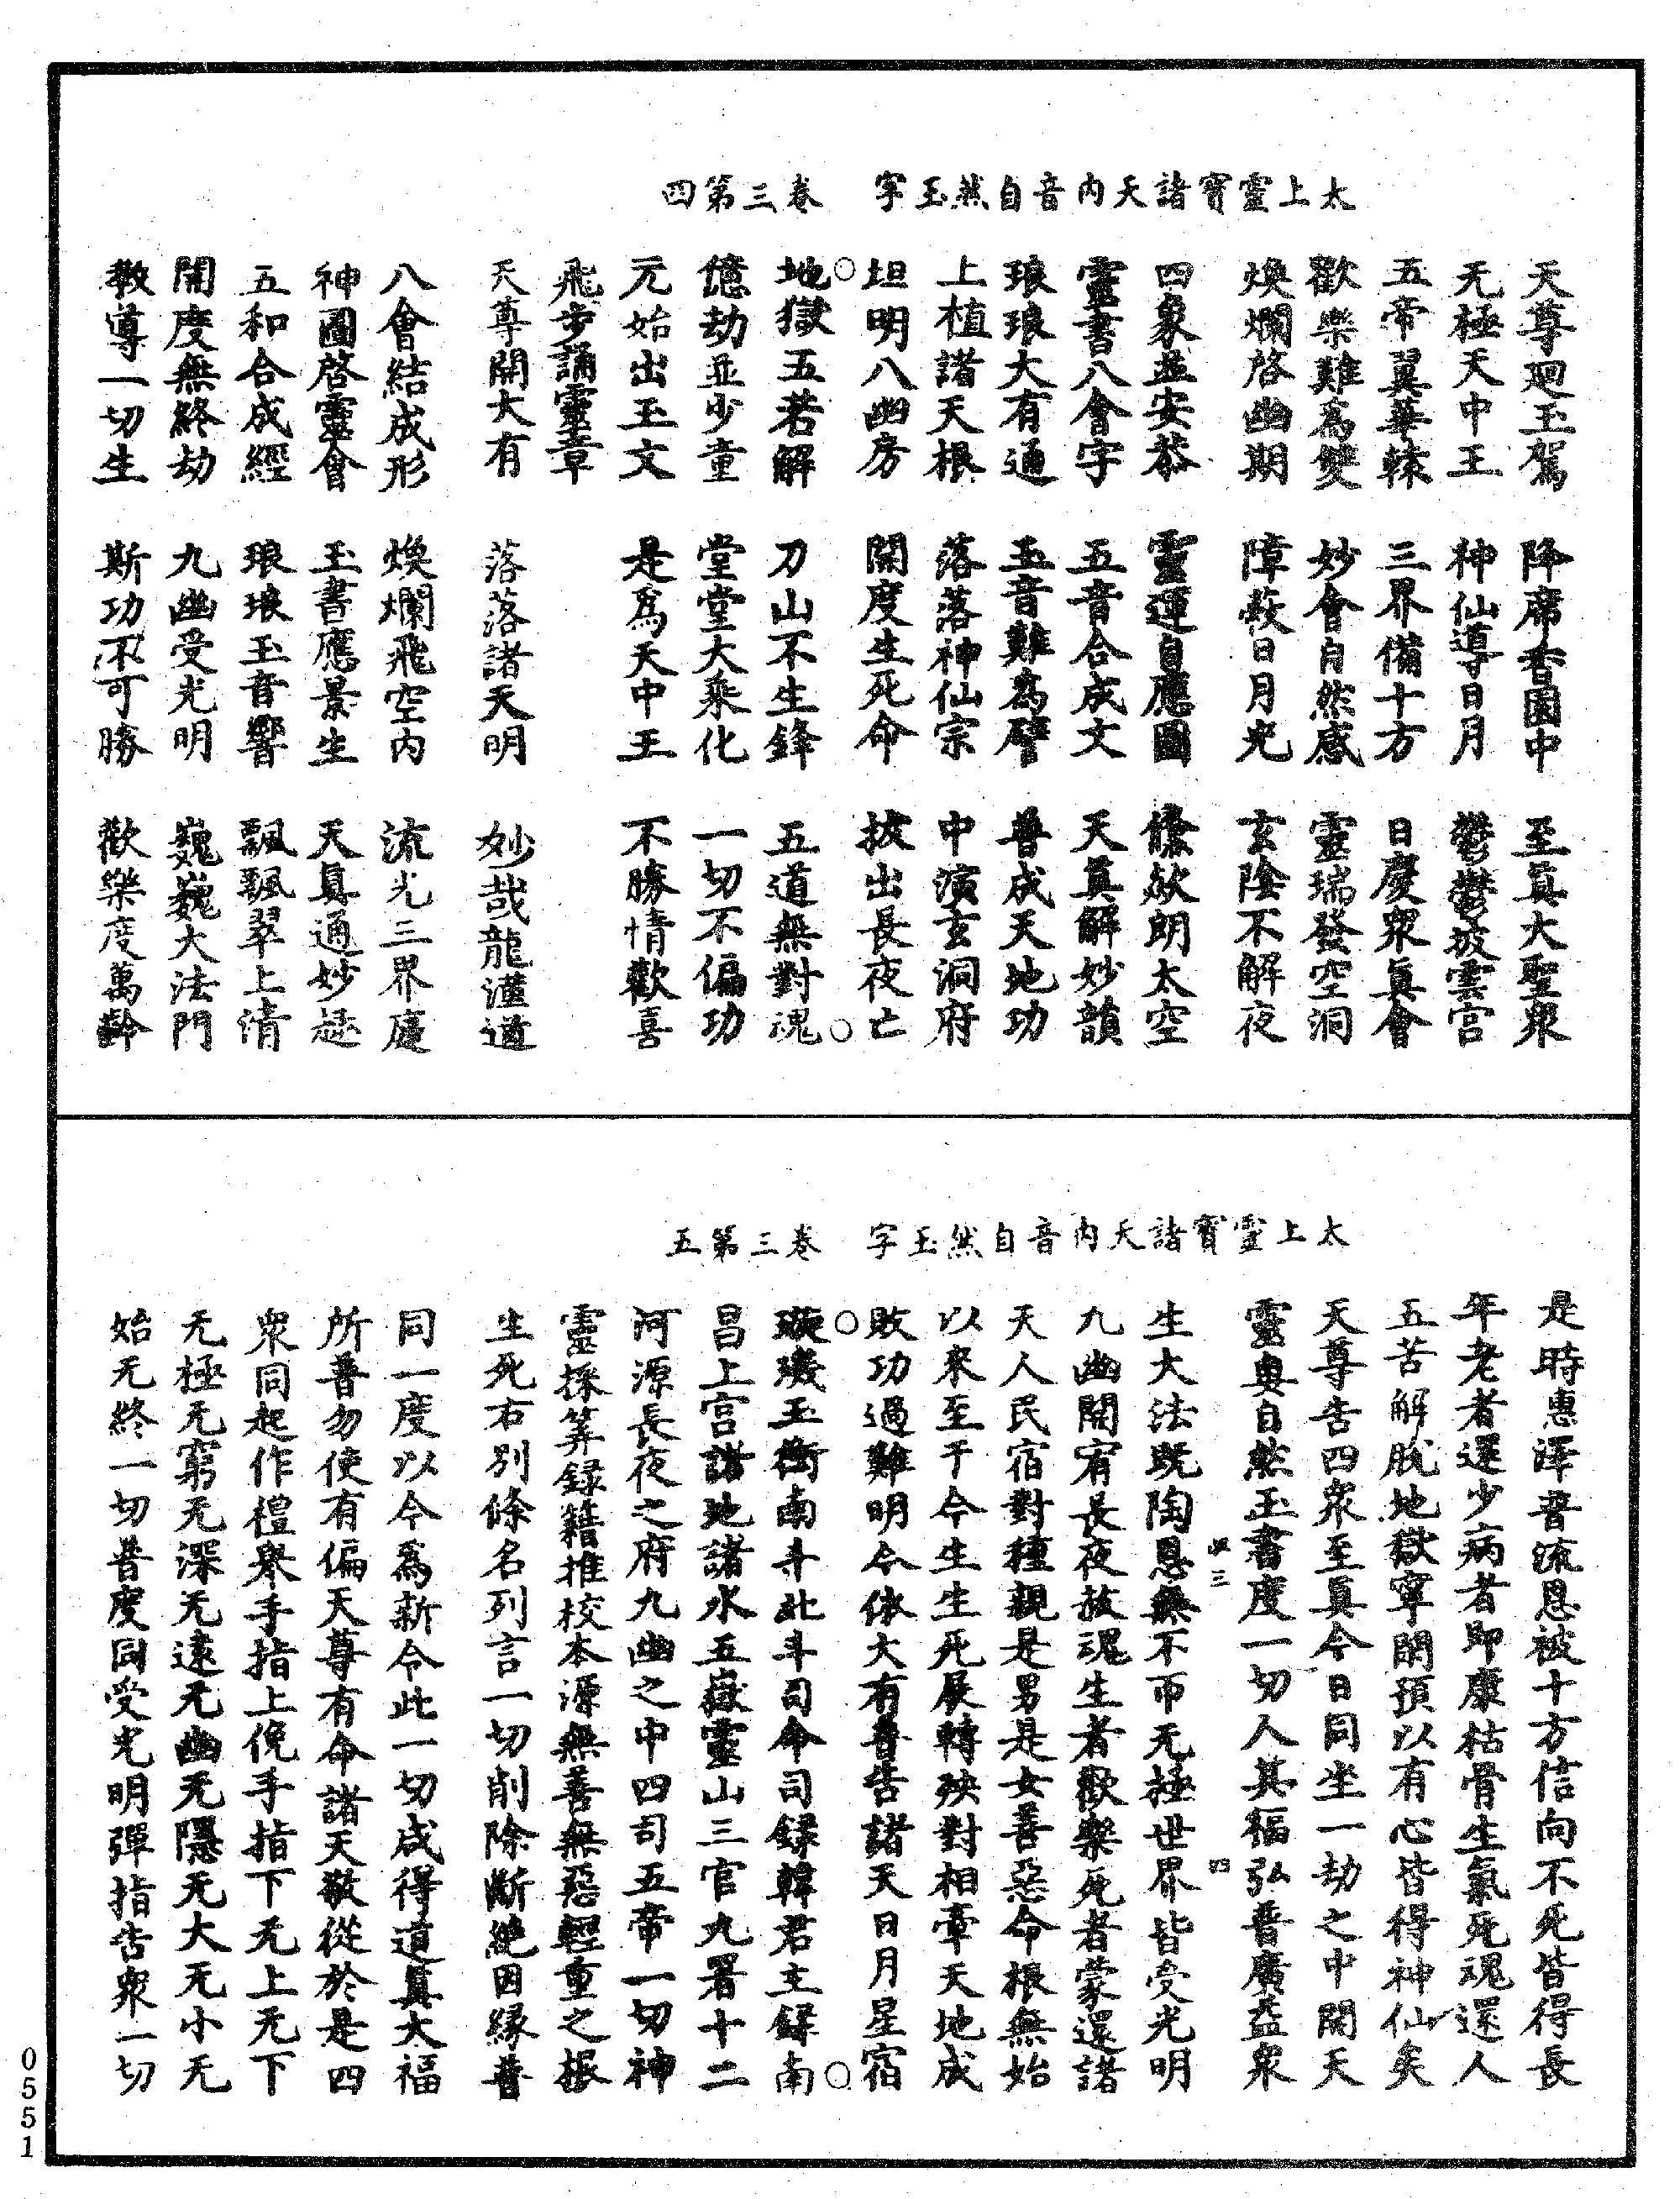 太上靈寶諸天內音自然玉字　卷三第四
天尊廻玉駕　降席香園中　至真大聖眾
无極天中王　神仙導日月　鬱鬱披雲宮
五帝翼華轅　三界備十方　日慶眾真會
歡樂難為雙　妙會自然感　靈瑞發空洞
煥爛啓幽期　障蔽日月光　玄陰不解夜
四象並安恭　靈運自應圖　儵欻朗太空
靈書八會字　五音合成文　天真解妙韻
琅琅大有通　玉音難為譬　普成天地功
上植諸天根　落落神仙宗　中演玄洞府
坦明八幽房　開度生死命　拔出長夜亡
地獄五若解　刀山不生鋒　五道無對魂
億劫並少童　堂堂大乘化　一切不偏功
元始出玉文　是為天中王　不勝情歡喜
飛步誦靈章
天尊開大有　落落諸天明　妙哉龍漢道
八會結成形　煥爛飛空內　流光三界庭
神圖啓靈會　玉書應景生　天真通妙趣
五和合成經　琅琅玉音響　飄飄翠上清
開度無終劫　九幽受光明　巍巍大法門
教導一切生　斯功不可勝　歡樂度萬齡
太上靈寶諸天內音自然玉字　卷三第五
是時惠澤普流恩被十方信向不死皆得長
年老者還少病者即康枯骨生氣死魂還人
五苦解脫地獄寧閑預以有心皆得神仙矣
天尊告四眾至真今日同坐一劫之中開天
靈奧自然玉書度一切人其福弘普廣益眾
生大法既陶恩無不帀无極世界皆受光明
九幽開宥長夜披魂生者歡樂死者蒙還諸
天人民宿對種親是男是女善惡命根無始
以來至于今生生死展轉殃對相牽天地成
敗功過難明今依大有普告諸天日月星宿
璇璣玉衡南斗北斗司命司錄韓君主錄南
昌上宮諸地諸水五嶽靈山三官九署十二
河源長夜之府九幽之中四司五帝一切神
靈採筭錄籍推校本源無善無惡輕重之根
生死右別條名列言一切削除斷絕因緣普
同一度以今為新令此一切咸得道真大福
所普勿使有偏天尊有命諸天敬從於是四
眾同起作禮舉手指上俛手指下无上无下
无極无窮无深无遠无幽无隱无大无小无
始无終一切普度同受光明彈指告眾一切
三
四
0551